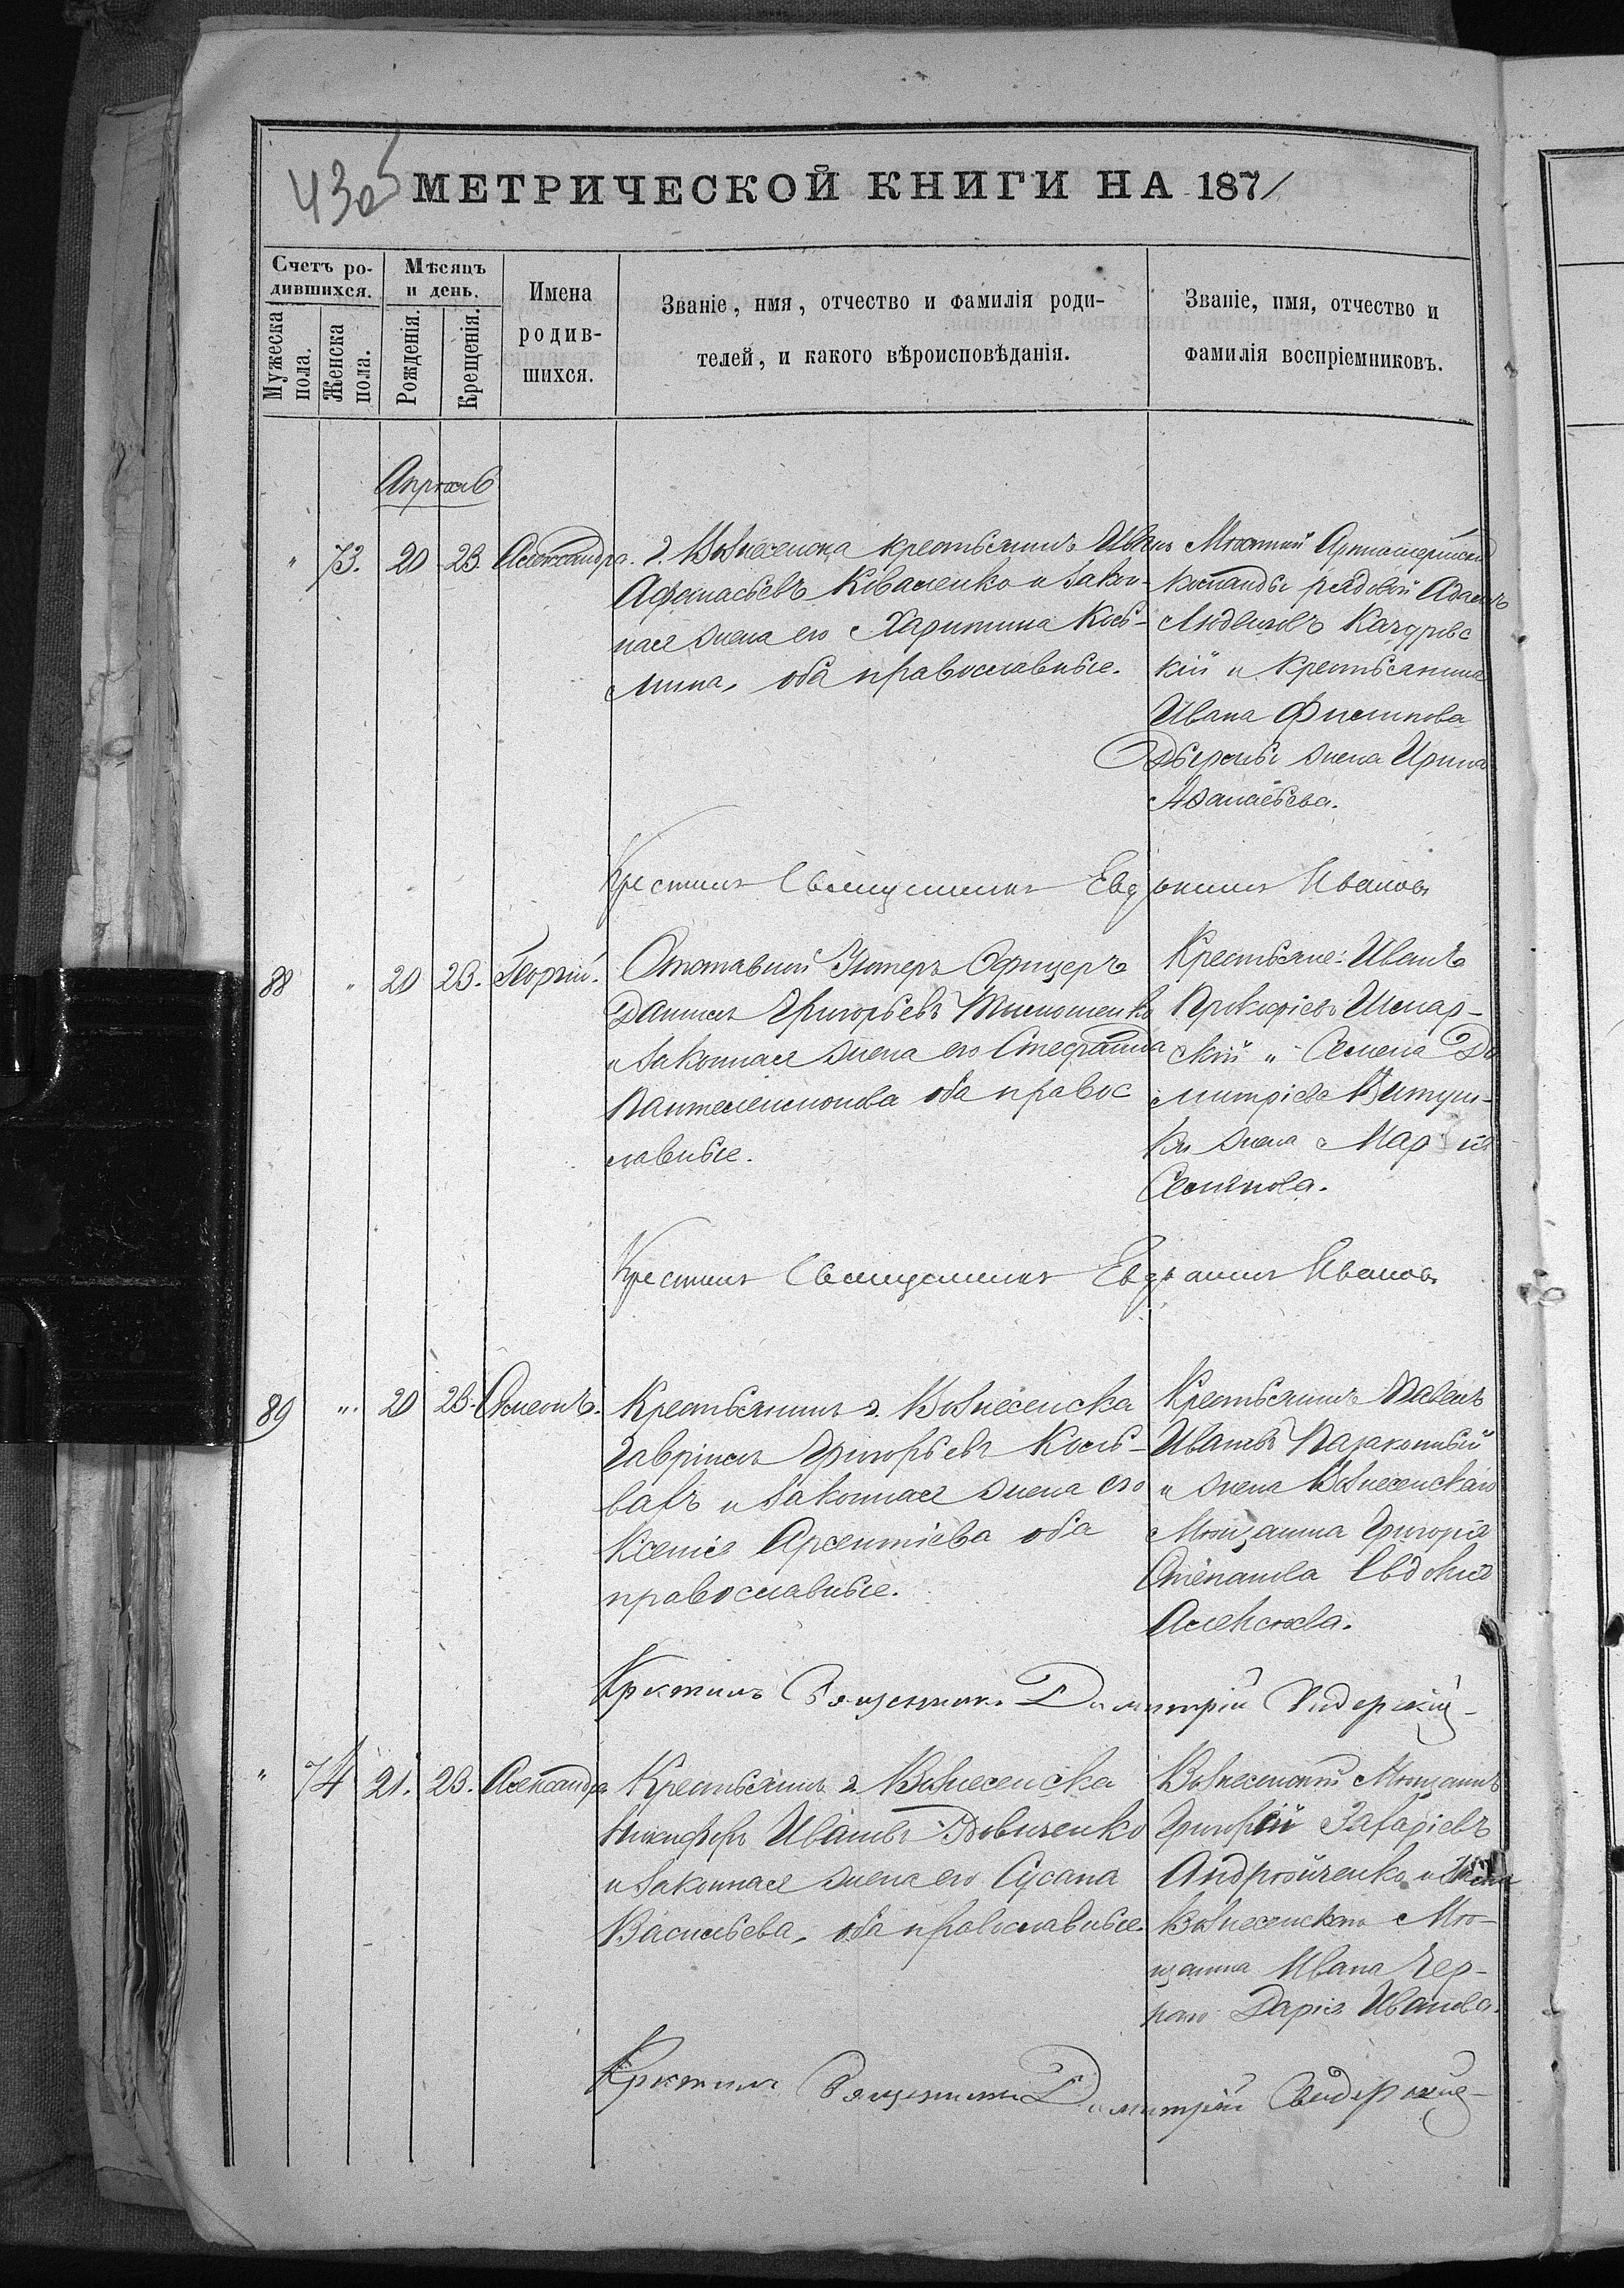 430б
МЕТРИЧЕСКОЙ КНИГИ НА 1871
Счетъ ро-
дившихся.
Мужеска пола.
Женска пола.
Мѣсяцъ
и день.
Рожденія.
Крещенія.
Имена
родив-
шихся.
Званіе, имя, отчество и фамилія роди-
телей, и какого вѣроисповѣданія.
Званіе, имя, отчество и
фамилія воспріемниковъ.
Апрѣль
" 73. 20 23. Александра.
г. Вознесенска крестьянинъ Иванъ
Афанасьевъ Коваленко и закон-
ная жена его Харитина Кось-
мина, оба православные.
Мѣстной Артиллерійской
команды рядовой Адамъ
Людвиговъ
кій и крестьянина
Ивана Филипова
жена Ирина
Афанасьева.
Крестилъ Священникъ Евдокимъ Ивановъ
88 " 20 23. Георгій.
Отставной Унтеръ Офицеръ
Даніилъ Григорьевъ
и законная жена его Стефанида
Пантелеимонова оба правос
лавные.
Крестьяне: Иванъ
Прокофіевъ
скій и Семена Ди
митріева
ки жена Марія
Семенова.
Крестилъ Священникъ Евдокимъ Ивановъ
89 " 20 23. Симеонъ.
Крестьянинъ г. Вознесенска
Гавріилъ Григорьевъ
и законная жена его
Ксенія Арсентіева оба
православные.
Крестьянинъ Павелъ
Ивановъ
и жена Вознесенскаго
Мѣщанина Григорія
Степанова Евдокія
Алексѣева.
Крестилъ Священникъ Димитрій Сидерскій
" 74 21. 23. Александра
Крестьянинъ г. Вознесенска
Никифоръ Ивановъ Довиченко
и законная жена его Сусана
Васильева, оба православные.
Вознесенскій Мѣщанинъ
Григорій Захаріевъ
Андрейченко и жена
Вознесенскаго Мѣ-
щанина Ивана Чер-
наго Дарія Иванова.
Крестилъ Священникъ Димитрій Сидерскій